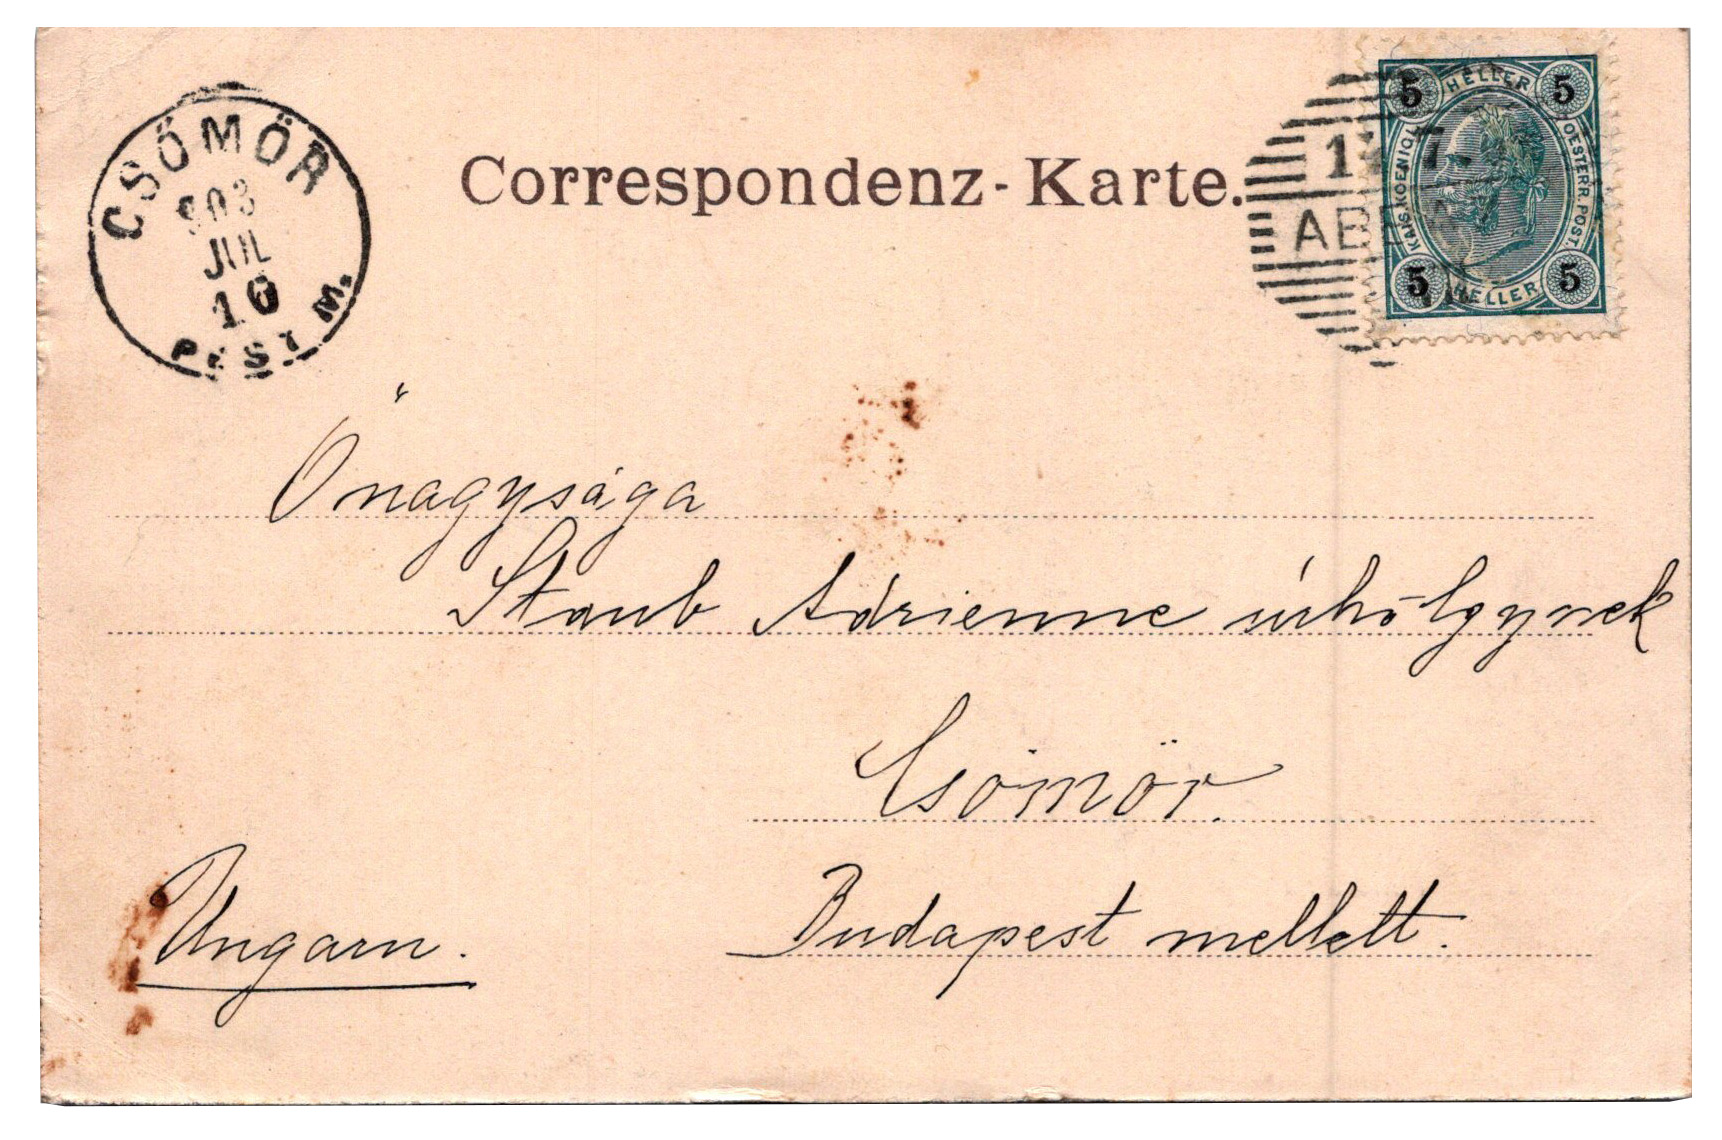 CSÖMÖR
903
JUL
16
PEST M.
Correspondenz-Karte.
5 HELLER 5
KAIS. KOENIGL. OESTERR. POST.
5 HELLER 5
Önagysága
Staub Adrienne úrhölgynek
Csömör.
Budapest mellett.
Ungarn.